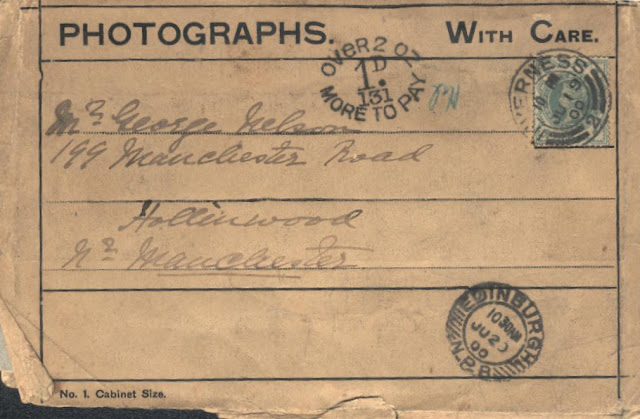 PHOTOGRAPHS. WITH CARE.
OVER 2 OZ
1D
131
MORE TO PAY
INVERNESS
JU 19
00
2
Mr. George Nelson
199 Manchester Road
Hollinwood
Nr. Manchester
EDINBURGH
10 30AM
JU 20
00
N.P.B
No. 1. Cabinet Size.